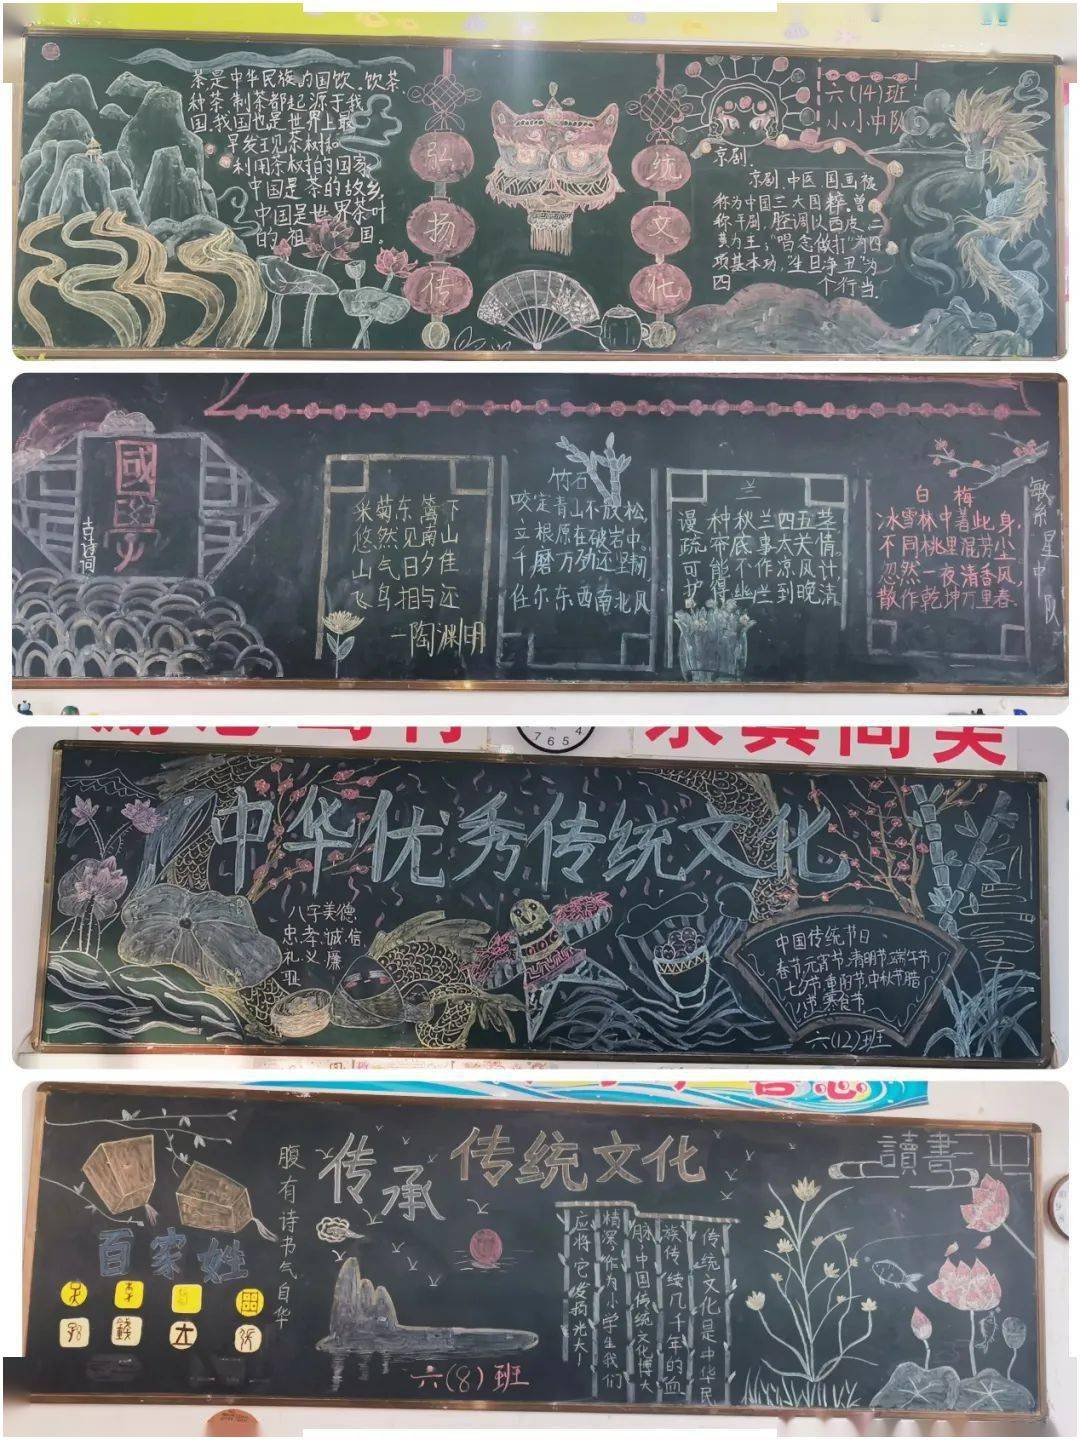 茶是中华民族的国饮。饮茶、
种茶、制茶都起源于我
国。我国也是世界上最
早发现茶树和
利用茶树的国家
中国是茶的故乡
中国是世界茶叶
的祖国。
弘扬传
统文化
六(14)班
小小中队
京剧.
京剧.中医.国画被
称为中国三大国粹.曾
称平剧,腔调以西皮.二
黄为主;"唱念做打"为四
项基本功,"生旦净丑"为
四个行当.
國學
古诗词
采菊东篱下
悠然见南山
山气日夕佳
飞鸟相与还
—陶渊明
竹石
咬定青山不放松,
立根原在破岩中。
千磨万劲还坚韧,
任尔东西南北风
兰
漫种秋兰四五茎
疏帘底事太关情。
可能不作凉风计,
护得幽兰到晚清
白梅
冰雪林中著此身,
不同桃里混芳尘
忽然一夜清香风,
散作乾坤万里春.
星中队
7 6 5 4
中华优秀传统文化
八字美德.
忠孝诚信,
礼义廉
中国传统节日
春节元宵节.清明节端午节
七夕节重阳节.中秋节腊
八节寒食节
六(12)班
传承
传统文化
讀書
腹有诗书气自华
百家姓
李
田
錢
传统文化是中华民
族传续几千年的血
脉,中国传统文化博大
精深,作为小学生我们
应将它发扬光大!
六(8)班